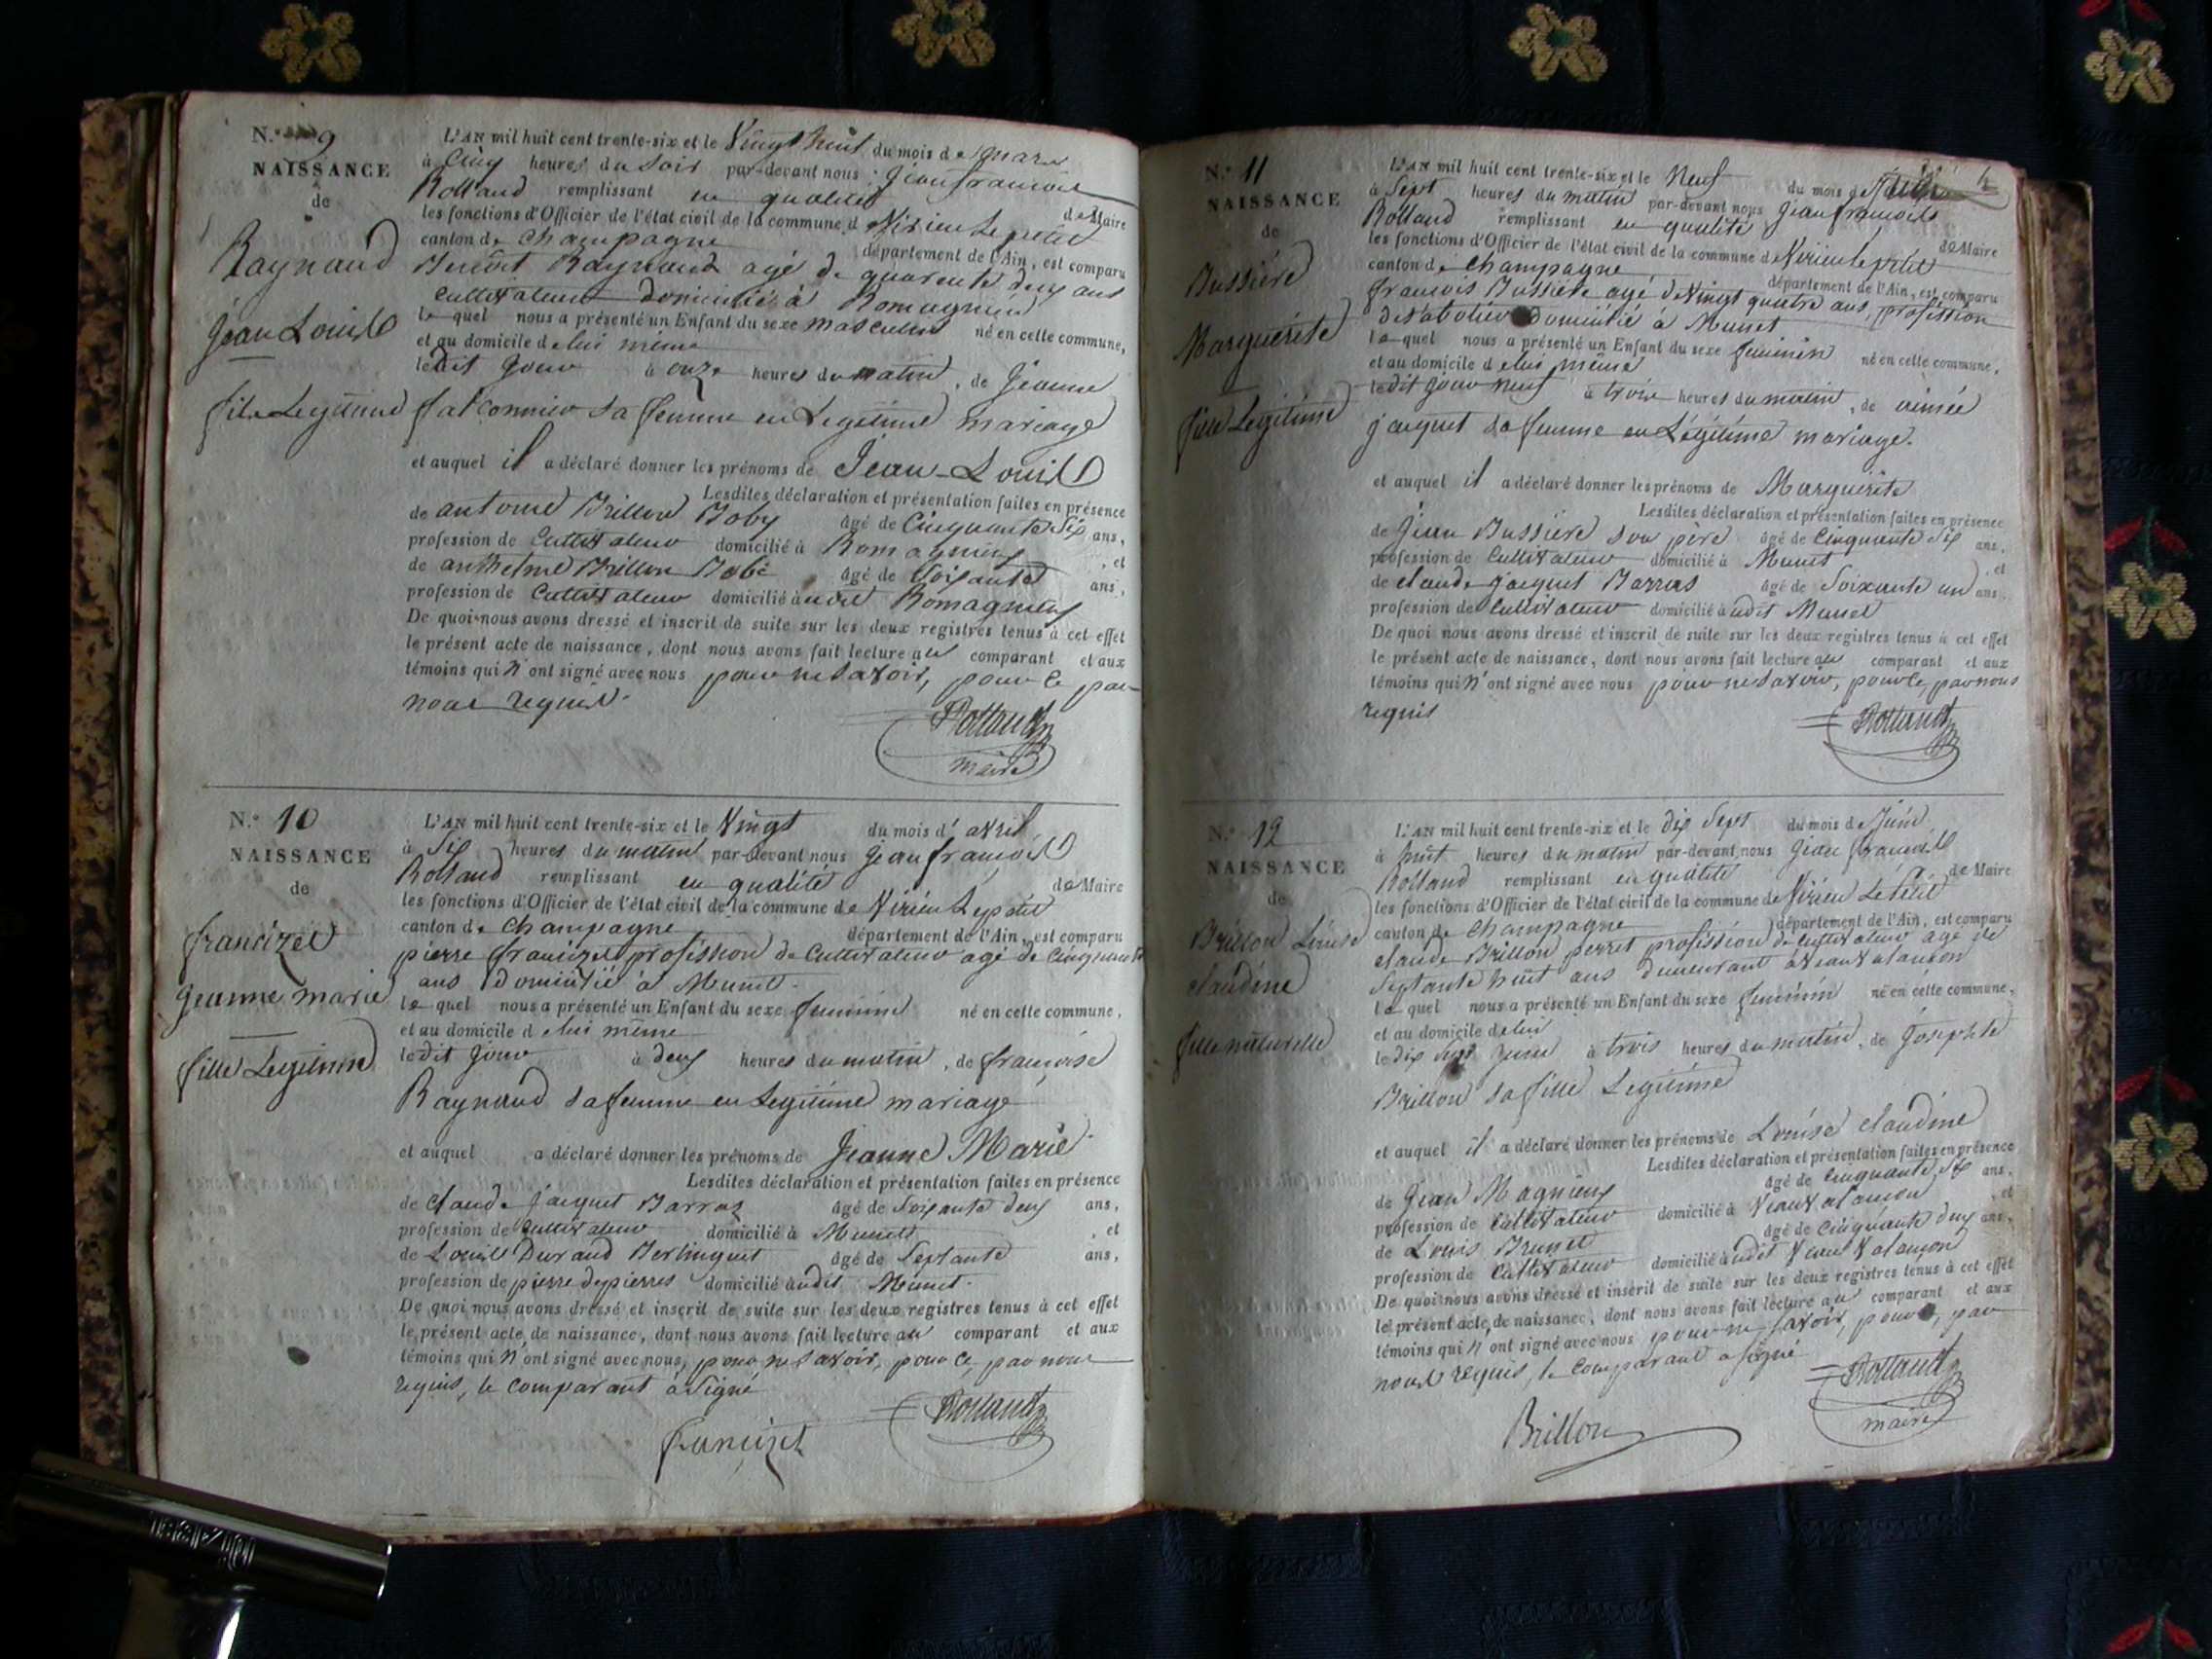 N.° 9
NAISSANCE
de
Raynaud
Jean Louis
fils Legitime
L'AN mil huit cent trente-six et le Vingt huit du mois de mars
à Cinq heures du soir par-devant nous jean francois
Rolland remplissant en qualité de Maire
les fonctions d'Officier de l'état civil de la commune d Virieu Le petit
canton de Champagne département de l'Ain, est comparu
Benoit Raynaud agé de quarente deux ans
Cultivateur domicilié à Romagnieu
le quel nous a présenté un Enfant du sexe masculin né en cette commune,
et au domicile de lui même
ledit jour à onze heures du matin, de jeanne
falconnier sa femme en Legitime mariage
et auquel il a déclaré donner les prénoms de Jean-Louis
Lesdites déclaration et présentation faites en présence
de antoine Brillon Boby âgé de Cinquante Six ans,
profession de Cultivateur domicilié à Romagnieu, et
de anthelme Brillon Bobi âgé de Soixante ans,
profession de Cultivateur domicilié audit Romagnieu
De quoi nous avons dressé et inscrit de suite sur les deux registres tenus à cet effet
le présent acte de naissance, dont nous avons fait lecture au comparant et aux
témoins qui n'ont signé avec nous pour ne savoir, pour ce par
nous requis.
Rolland
maire
N.° 10
NAISSANCE
de
francizet
jeanne marie
fille Legitime
L'AN mil huit cent trente-six et le Vingt du mois d'avril
à Six heures du matin par-devant nous jean francois
Rolland remplissant en qualité de Maire
les fonctions d'Officier de l'état civil de la commune de Virieu Le petit
canton de Champagne département de l'Ain, est comparu
pierre francizet profession de Cultivateur agé de Cinquante
ans domicilié à Munet.
le quel nous a présenté un Enfant du sexe feminin né en cette commune,
et au domicile de lui même
ledit jour à deux heures du matin, de francoise
Raynaud sa femme en Legitime mariage
et auquel a déclaré donner les prénoms de Jeanne Marie
Lesdites déclaration et présentation faites en présence
de Claude jacquet Barras âgé de Soixante deux ans,
profession de Cultivateur domicilié à Munet, et
de Louis Durand Berlinguet âgé de Septante ans,
profession de pierre de pierres domicilié audit Munet.
De quoi nous avons dressé et inscrit de suite sur les deux registres tenus à cet effet
le présent acte de naissance, dont nous avons fait lecture au comparant et aux
témoins qui n'ont signé avec nous, pour ne savoir, pour ce, par nous
requis, le comparant à signé
francizet
Rolland
N.° 11
NAISSANCE
de
Bussière
Marguerite
fille Legitime
L'AN mil huit cent trente-six et le Neuf du mois de
à Sept heures du matin par-devant nous jean francois
Rolland remplissant en qualité de Maire
les fonctions d'Officier de l'état civil de la commune de Virieu Le petit
canton de Champagne département de l'Ain, est comparu
francois Bussière agé de Vingt quatre ans, profession
de sabotier domicilié à Munet
le quel nous a présenté un Enfant du sexe feminin né en cette commune,
et au domicile de lui même
ledit jour neuf à trois heures du matin, de aimée
jacquet sa femme en Légitime mariage.
et auquel il a déclaré donner les prénoms de Marguerite
Lesdites déclaration et présentation faites en présence
de Jean Bussiere son père âgé de Cinquante Six ans,
profession de Cultivateur domicilié à Munet, et
de claude jacquet Barras âgé de Soixante un ans,
profession de Cultivateur domicilié audit Munet
De quoi nous avons dressé et inscrit de suite sur les deux registres tenus à cet effet
le présent acte de naissance, dont nous avons fait lecture au comparant et aux
témoins qui n'ont signé avec nous pour ne savoir, pour ce, par nous
requis
Rolland
N.° 12
NAISSANCE
de
Brillon Louise
claudine
fille naturelle
L'AN mil huit cent trente-six et le dix Sept du mois de Juin
à huit heures du matin par-devant nous jean francois
Rolland remplissant en qualité de Maire
les fonctions d'Officier de l'état civil de la commune de Virieu Le Petit
canton de Champagne département de l'Ain, est comparu
claude Brillon perret profession de cultivateur agé de
Septante huit ans demeurant à Veaux
le quel nous a présenté un Enfant du sexe feminin né en cette commune,
et au domicile de lui
le dix sept juin à trois heures du matin, de josephte
Brillon sa fille Legitime
et auquel il a déclaré donner les prénoms de Louise claudine
Lesdites déclaration et présentation faites en présence
de Jean Magnieux âgé de Cinquante Six ans,
profession de Cultivateur domicilié à Veaux, et
de Louis Brunet âgé de Cinquante deux ans,
profession de Cultivateur domicilié audit Veaux
De quoi nous avons dressé et inscrit de suite sur les deux registres tenus à cet effet
le présent acte de naissance, dont nous avons fait lecture au comparant et aux
témoins qui n ont signé avec nous pour ne savoir, pour ce, par
nous requis, le comparant a signé
Brillon
Rolland
maire